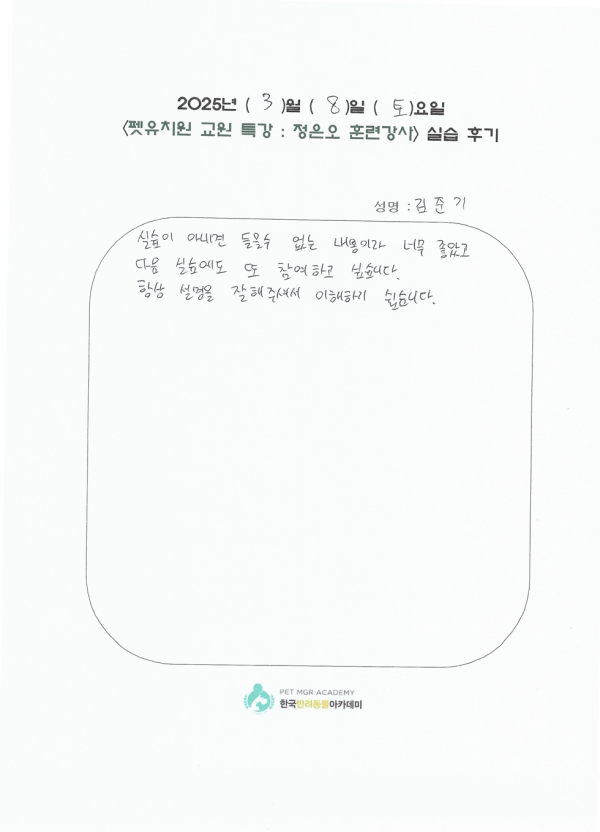 2025년 ( 3 )월 ( 8 )일 ( 토 )요일
<펫유치원 교원 특강 : 정은오 훈련강사> 실습 후기
성명 : 김준기
실습이 아니면 들을수 없는 내용이라 너무 좋았고
다음 실습에도 또 참여하고 싶습니다.
항상 설명을 잘해주셔서 이해하기 쉽습니다.
PET MGR ACADEMY
한국반려동물아카데미